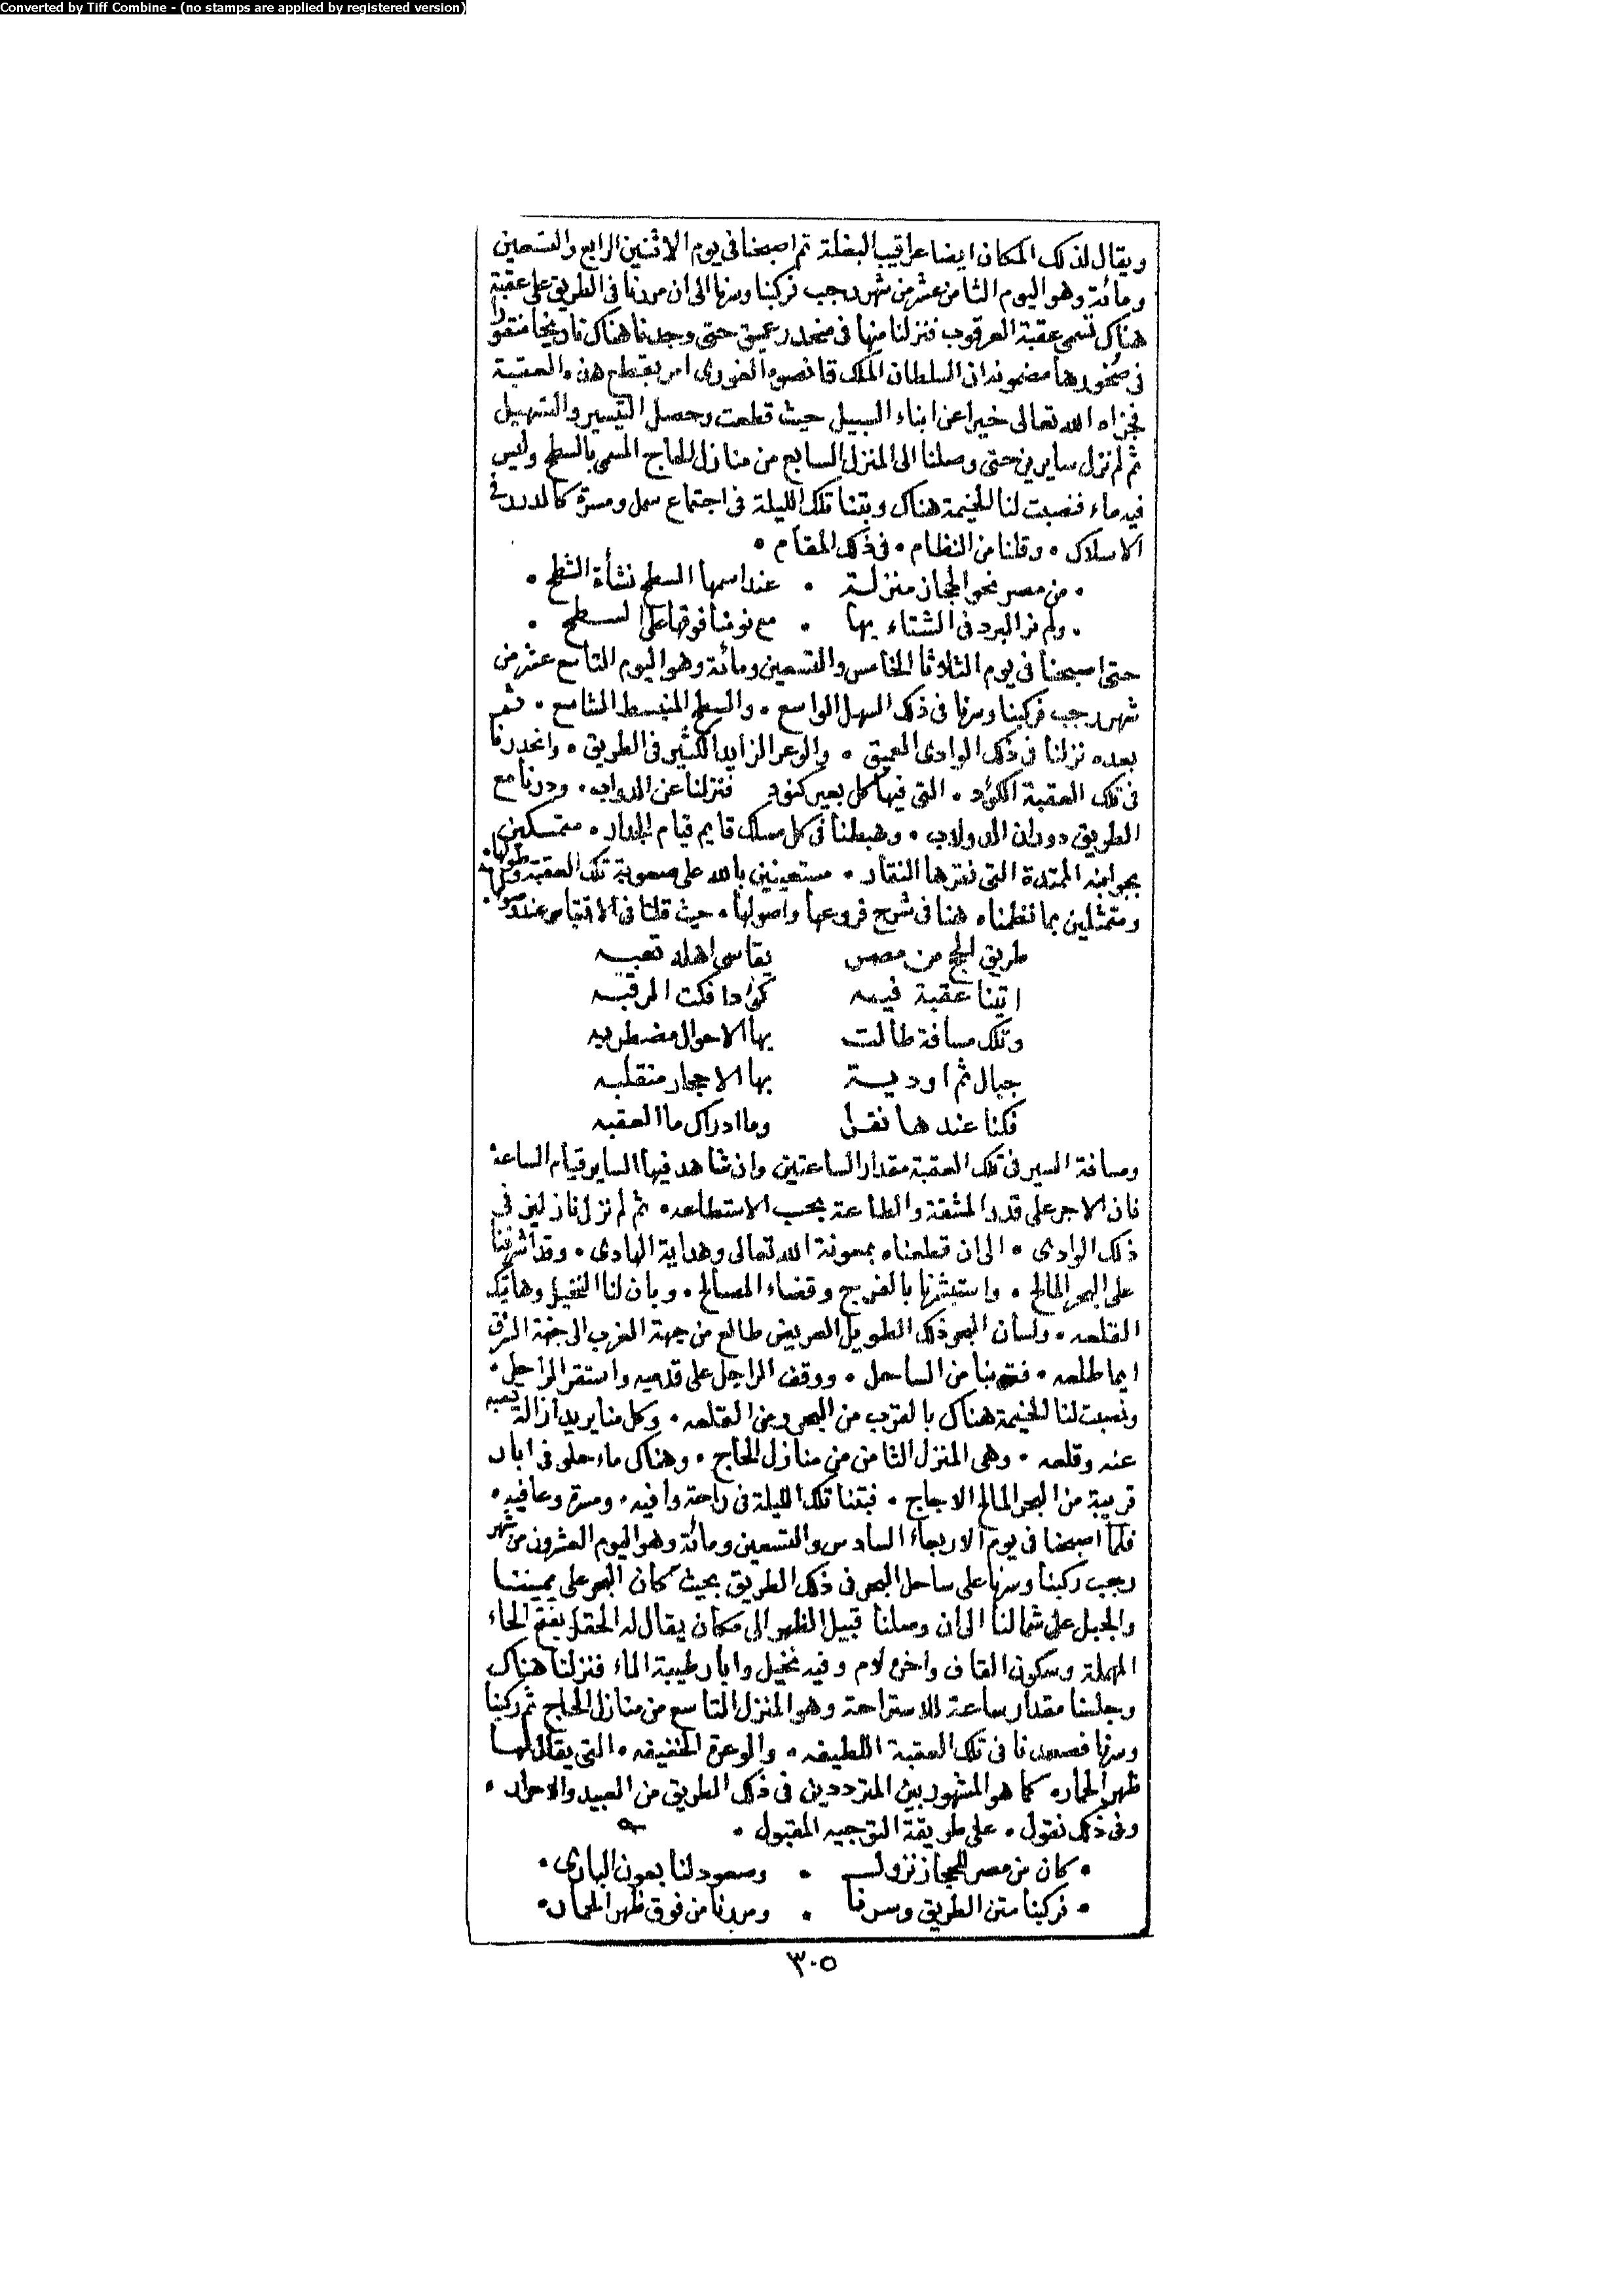 Converted by Tiff Combine - (no stamps are applied by registered version)
ويقال لذلك المكان ايضا عراقيب البغلة ثم اصبحنا فى يوم الاثنين الرابع والتسعين
ومائة وهو اليوم الثامن عشر من شهر رجب فركبنا وسرنا الى ان مررنا فى الطريق على عقبة
هناك تسمى عقبة العرقوب فنزلنا منها فى منحدر عميق حتى وجدنا هناك تاريخا منقورا
فى صخورها مضمونه ان السلطان الملك قانصوه الغورى امر بقطع هذه العقبة
فجزاه الله تعالى خيرا عن ابناء السبيل حيث قطعت وحصل التيسير والتسهيل
ثم لم نزل سايرين حتى وصلنا الى المنزل السابع من منازل الحاج المسمى بالسطح وليس
فيه ماء فنصبت لنا الخيمة هناك وبتنا تلك الليلة فى اجتماع شمل ومسرة كالدرر فى
الاسلاك • وقلنا من النظام • فى ذلك المقام •
• من مصر نحو الحجاز منزلة • عند اسمها السطح نشأة الشطح •
• ولم نر البرد فى الشتاء بها • مع نومنا فوقها على السطح •
حتى اصبحنا فى يوم الثلاثا الخامس والتسعين ومائة وهو اليوم التاسع عشر من
شهر رجب فركبنا وسرنا فى ذلك السهل الواسع • والسطح المنبسط الشاسع • ثم
بعده نزلنا فى ذلك الوادى العميق • والوعر الزايد الكثير فى الطريق • وانحدرنا
فى تلك العقبة الكؤد • التى فيها كل بعير كنود فنزلنا عن الدواب • ودرنا مع
الطريق دوران الدولاب • وهبطنا فى كل مسلك قايم قيام الجدار • متمسكين
بجوانبه الممتدة التى نقرها النقار • مستعينين بالله على صعوبة تلك العقبة وطولها •
ومتمثلين بما نظمناه هنا فى شرح فروعها واصولها • حيث قلنا فى الاقتباس عند
طريق الحج من مصر يقاسى اهله تعبه
اتينا عقبة فيه
وتلك مسافة طالت بها الاحوال مضطربه
جبال ثم اودية بها الاحجار منقلبه
فكنا عندها نقرا وما ادراك ما العقبه
ومسافة السير فى تلك العقبة مقدار الساعتين وان شاهد فيها الساير قيام الساعة
فان الاجر على قدر المشقة والطاعة بحسب الاستطاعه • ثم لم نزل نازلين فى
ذلك الوادى • الى ان قطعناه بمعونة الله تعالى وهداية الهادى • وقد اشرفنا
على البحر المالح • واستبشرنا بالفرج وقضاء المصالح • وبان لنا النخيل وهاتيك
القلعه • ولسان البحر ذلك الطويل العريض طالع من جهة الغرب الى جهة الشرق
ايما طلعه • فتقربنا من الساحل • ووقف الراجل على قدميه واستقر الراحل •
ونصبت لنا الخيمة هناك بالقرب من البحر ومن القلعه • وكل منا يريد ازالة تعبه
عنه وقلعه • وهى المنزل الثامن من منازل الحاج • وهناك ماء حلو فى ابار
قريبة من البحر المالح الاجاج • فبتنا تلك الليلة فى راحة وافيه • ومسرة وعافيه •
فلما اصبحنا فى يوم الاربعاء السادس والتسعين ومائة وهو اليوم العشرون من شهر
رجب ركبنا وسرنا على ساحل البحر فى ذلك الطريق بحيث كان البحر على يميننا
والجبل على شمالنا الى ان وصلنا قبيل الظهر الى مكان يقال له الحقل بفتح الحاء
المهملة وسكون القاف واخره لام وفيه نخيل وابار طيبة الماء فنزلنا هناك
وجلسنا مقدار ساعة للاستراحة وهو المنزل التاسع من منازل الحاج ثم ركبنا
وسرنا فصعدنا فى تلك العقبة اللطيفه • والوعرة الخفيفه • التى يقال لها
ظهر الحمار • كما هو المشهور بين المترددين فى ذلك الطريق من العبيد والاحرار •
وفى ذلك نقول • على طريقة التوجيه المقبول •
• كان من مصر للحجاز نزول • وصعود لنا بعون البارى •
• فركبنا متن الطريق وسرنا • ومررنا من فوق ظهر الحمار •
٣٠٥